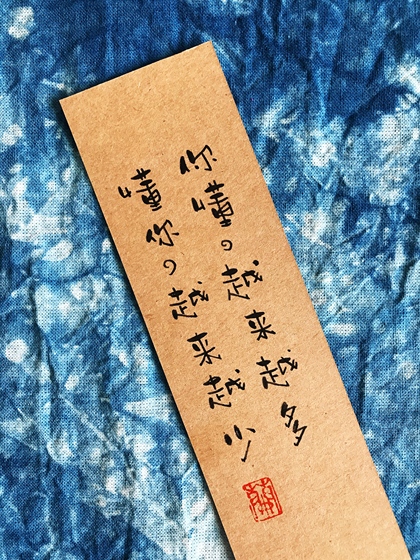 你懂の越来越多
懂你の越来越少